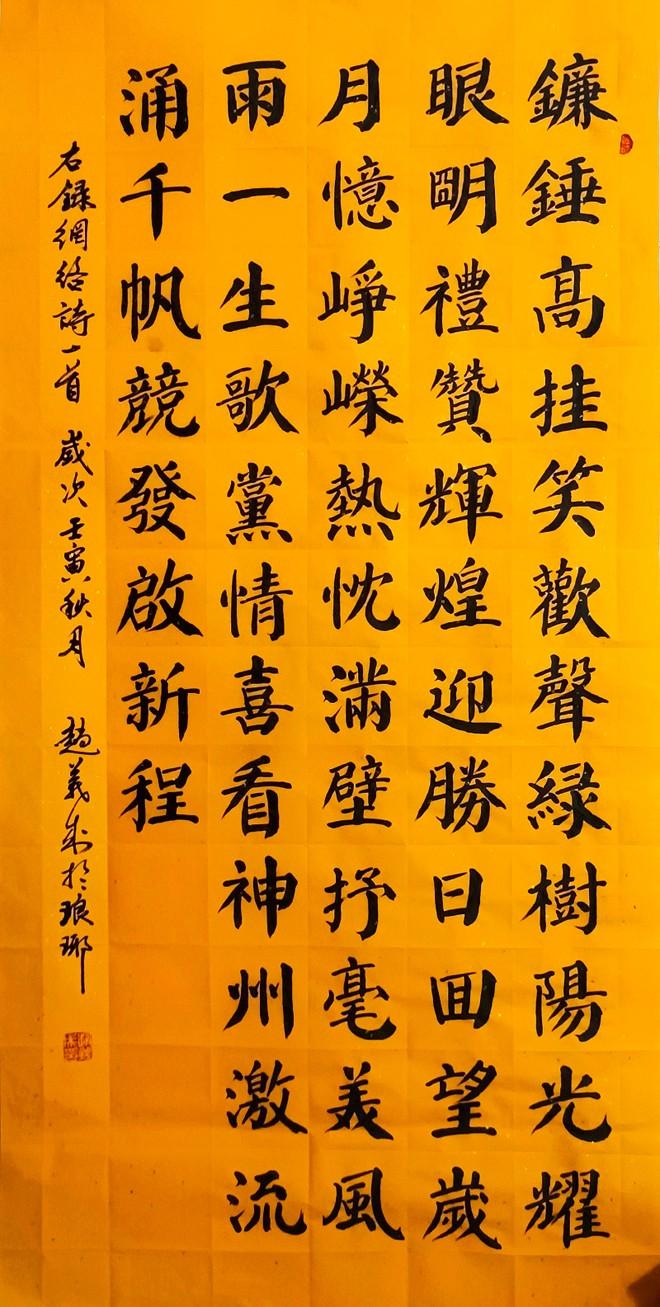 鐮錘高挂笑歡聲緑樹陽光耀
眼明禮贊輝煌迎勝日回望歲
月憶崢嶸熱忱滿壁抒毫美風
雨一生歌黨情喜看神州激流
涌千帆競發啟新程
右録網絡詩一首 歲次壬寅秋月 趙義成於琅琊